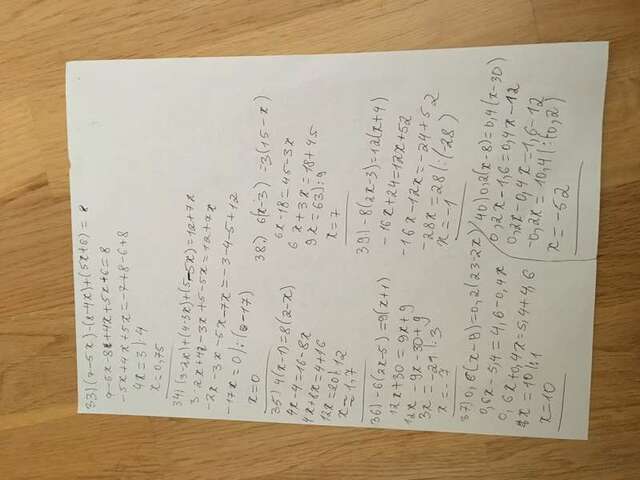 33) (7-5x)-(8-4x)+(5x+6) = 8
7-5x-8+4x+5x+6=8
-5x+4x+5x=-7+8-6+8
4x=3|:4
x=0,75
34) (3-2x)+(4-3x)+(5-5x)=12+7x
3-2x+4-3x+5-5x=12+7x
-2x-3x-5x-7x=-3-4-5+12
-17x=0|:(-17)
x=0
35) 4(x-1)=8(2-x)
4x-4=16-8x
4x+8x=4+16
12x=20|:12
x≈1,7
36) -6(2x-5)=9(x+1)
12x+30=9x+9
12x-9x-30+9
3x=-21|:3
x=-7
37) 0,6(x-9)=0,2(23-2x)
0,6x-5,4=4,6-0,4x
0,6x+0,4x=5,4+4,6
x=10|:1
x=10
38) 6(x-3)=3(15-x)
6x-18=45-3x
6x+3x=18+45
9x=63|:9
x=7
39) -8(2x-3)=12(x+4)
-16x+24=12x+52
-16x-12x=-24+52
-28x=28|:(-28)
x=-1
40) 0,2(x-8)=0,4(x-30)
0,2x-1,6=0,4x-12
0,2x-0,4x=1,6-12
-0,2x=10,4|:(-0,2)
x=-52